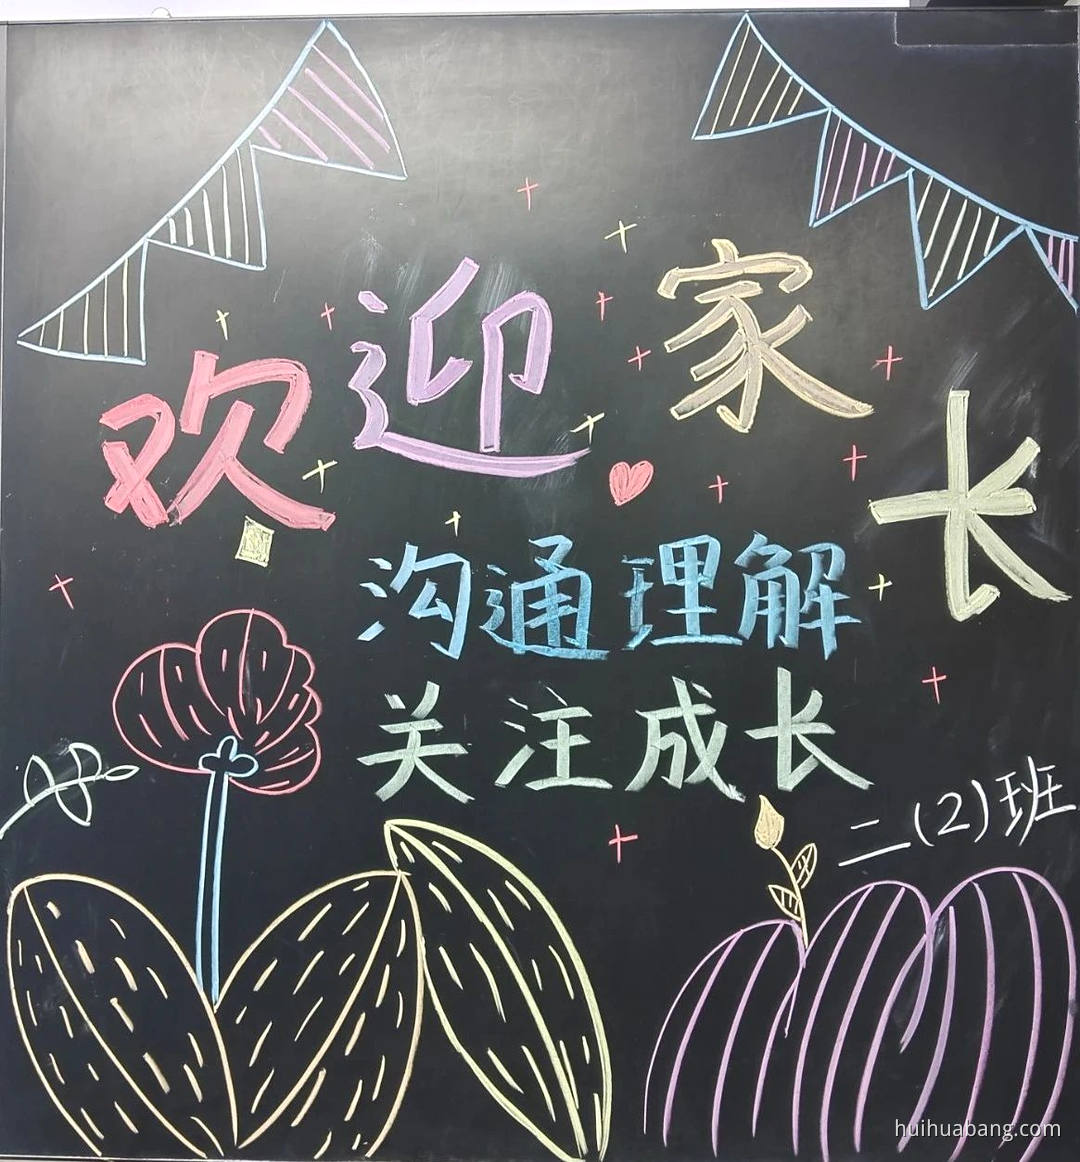 欢迎家长
沟通理解
关注成长
二(2)班
huihuabang.com